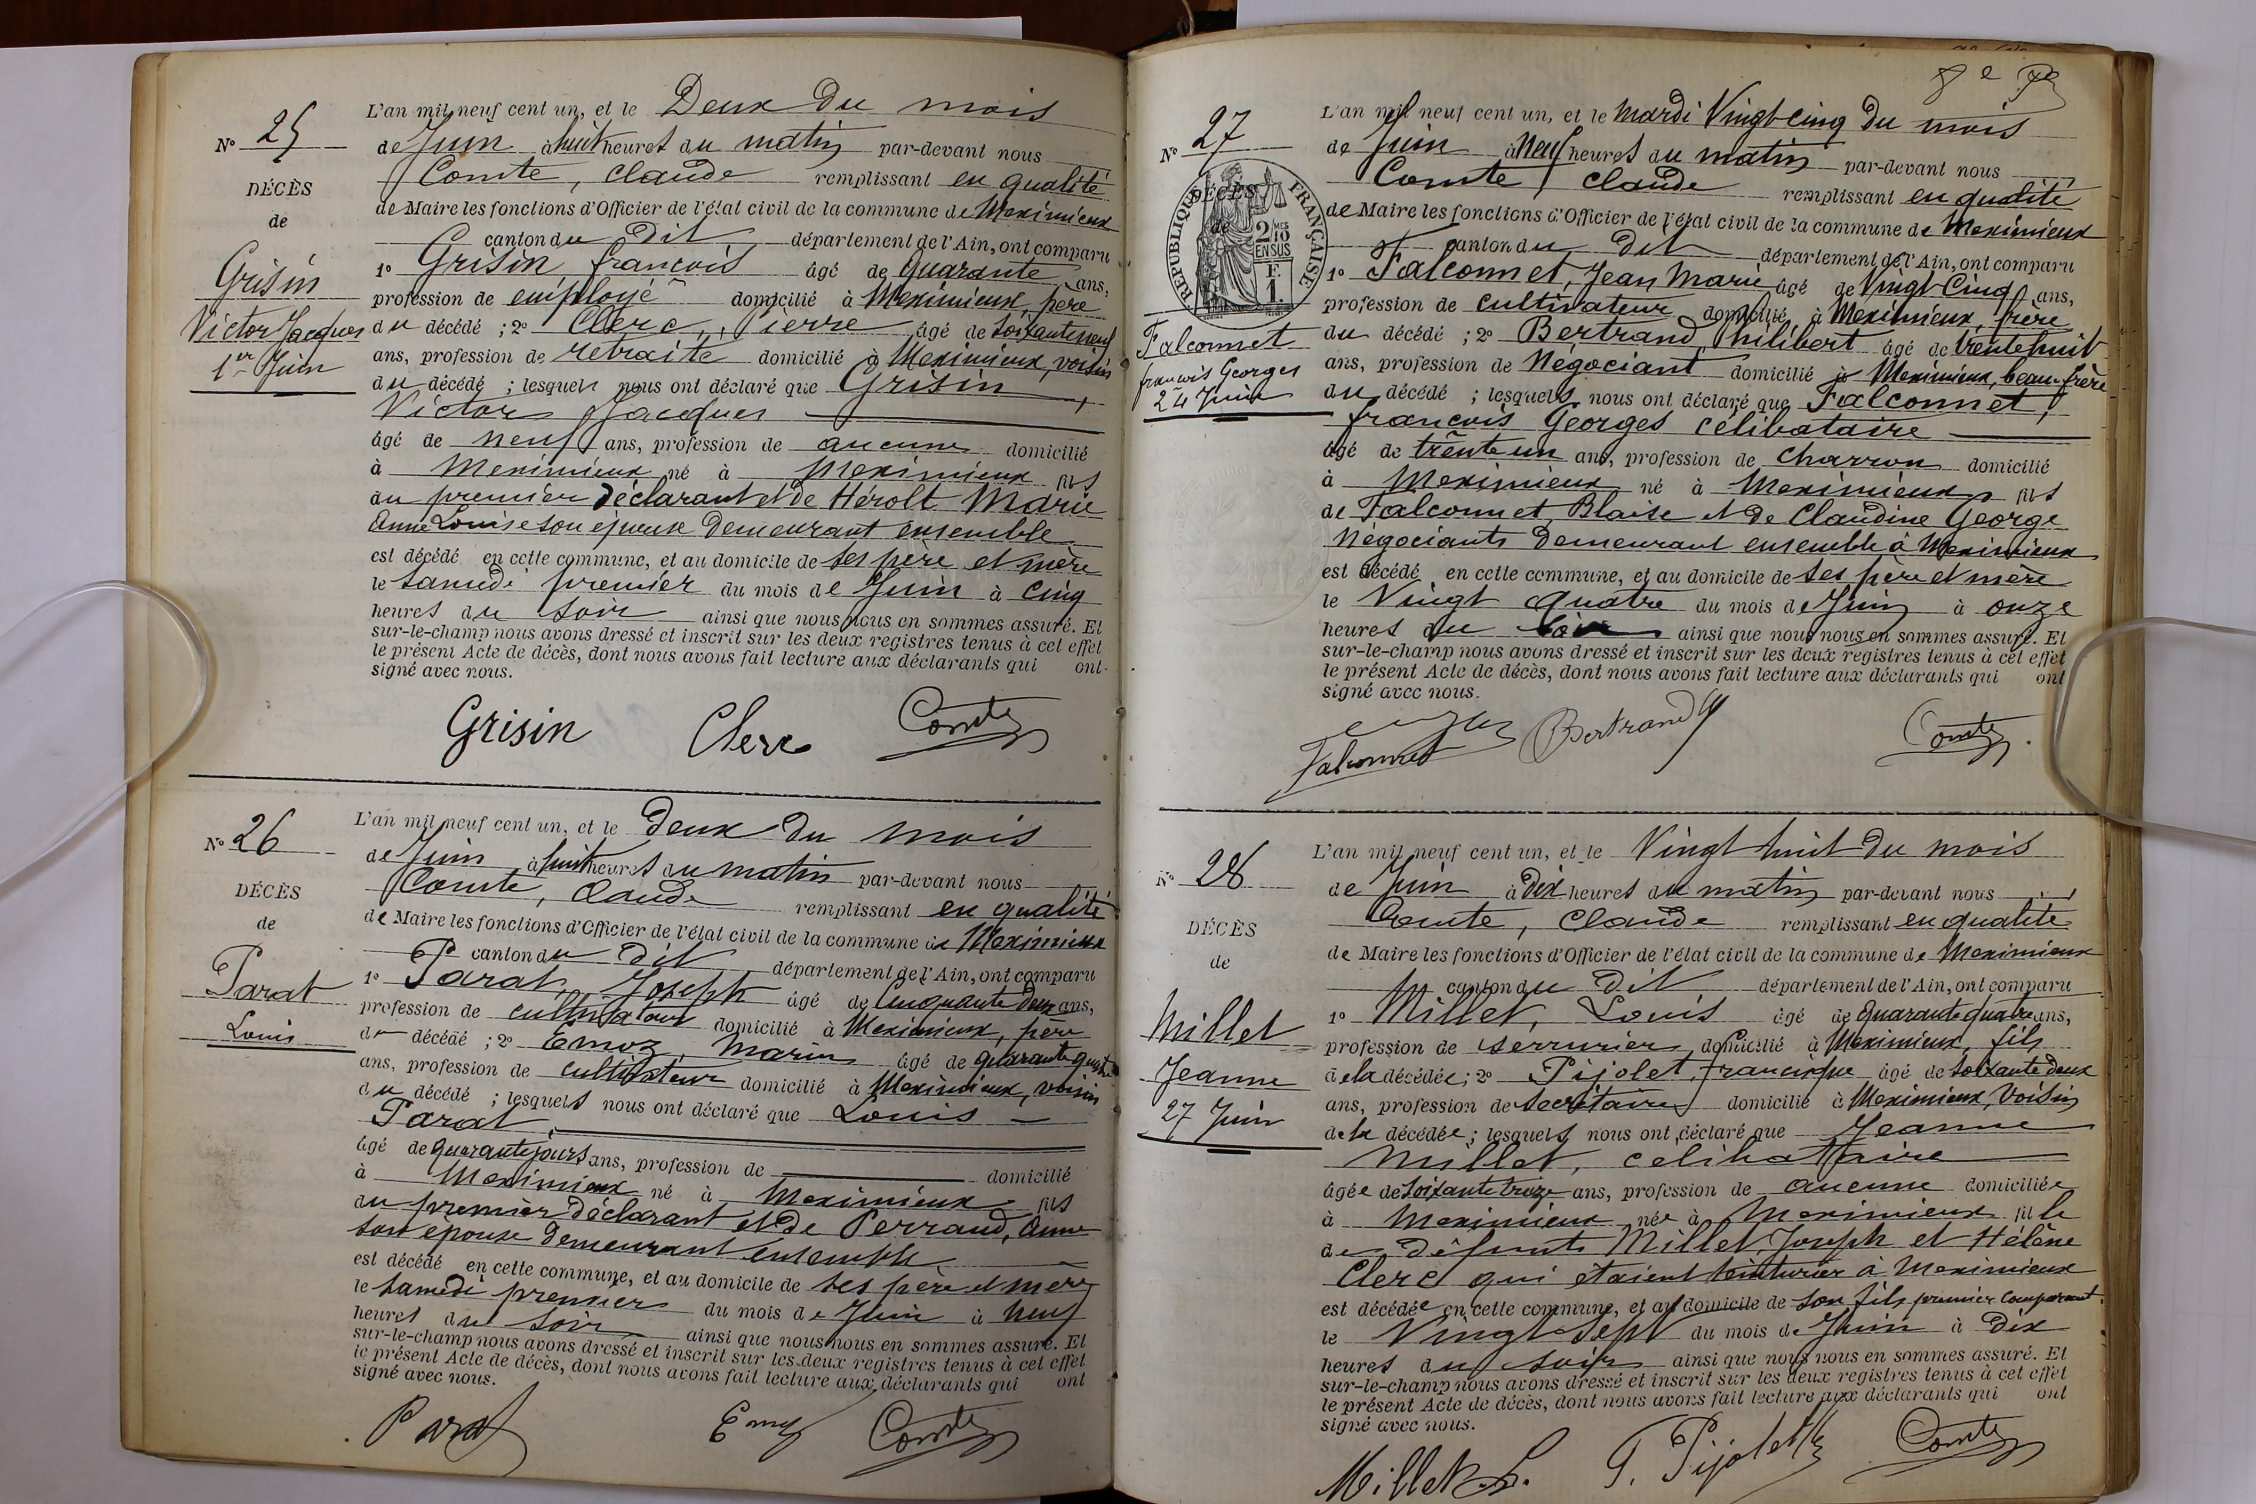 L'an mil neuf cent un, et le Deux du mois
N° 25
de Juin à huit heures du matin par-devant nous
Comte, Claude remplissant en qualité
DÉCÈS
de Maire les fonctions d'Officier de l'état civil de la commune de Meximieux
de
canton du Dit département de l'Ain, ont comparu
Grisin
1° Grisin, François âgé de quarante ans,
profession de employé domicilié à Meximieux, père
Victor Jacques
du décédé ; 2° Clerc, Pierre âgé de soixante neuf
1er Juin
ans, profession de retraité domicilié à Meximieux, voisin
du décédé ; lesquels nous ont déclaré que Grisin,
Victor Jacques
âgé de neuf ans, profession de aucune domicilié
à Meximieux né à Meximieux fils
du premier déclarant et de Hérolt Marie
Anne Louise son épouse demeurant ensemble
est décédé en cette commune, et au domicile de ses père et mère
le samedi premier du mois de Juin à cinq
heures du soir ainsi que nous nous en sommes assuré. Et
sur-le-champ nous avons dressé et inscrit sur les deux registres tenus à cet effet
le présent Acte de décès, dont nous avons fait lecture aux déclarants qui ont
signé avec nous.
Grisin Clerc Comte
L'an mil neuf cent un, et le deux du mois
N° 26
de Juin à huit heures du matin par-devant nous
Comte, Claude remplissant en qualité
DÉCÈS
de Maire les fonctions d'Officier de l'état civil de la commune de Meximieux
de
canton du Dit département de l'Ain, ont comparu
Parat
1° Parat, Joseph âgé de Cinquante deux ans,
profession de cultivateur domicilié à Meximieux, père
Louis
du décédé ; 2° Emoz, Marin âgé de quarante quatre
ans, profession de cultivateur domicilié à Meximieux, voisin
du décédé ; lesquels nous ont déclaré que Louis
Parat
âgé de quarante jours ans, profession de domicilié
à Meximieux né à Meximieux fils
du premier déclarant et de Perraud, Anne
son épouse demeurant ensemble
est décédé en cette commune, et au domicile de ses père et mère
le samedi premier du mois de Juin à neuf
heures du soir ainsi que nous nous en sommes assuré. Et
sur-le-champ nous avons dressé et inscrit sur les deux registres tenus à cet effet
le présent Acte de décès, dont nous avons fait lecture aux déclarants qui ont
signé avec nous.
Parat Emoz Comte
8e
L'an mil neuf cent un, et le mardi Vingt-cinq du mois
N° 27
de Juin à Neuf heures du matin par-devant nous
Comte, Claude remplissant en qualité
DÉCÈS
de
RÉPUBLIQUE FRANÇAISE
2/10MES
EN SUS
F.
1.
de Maire les fonctions d'Officier de l'état civil de la commune de Meximieux
canton du Dit département de l'Ain, ont comparu
1° Falconnet, Jean Marie âgé de Vingt Cinq ans,
profession de cultivateur domicilié à Meximieux, frère
Falconnet
du décédé ; 2° Bertrand, Philibert âgé de trente huit
François Georges
ans, profession de Négociant domicilié à Meximieux, beau-frère
24 Juin
du décédé ; lesquels nous ont déclaré que Falconnet,
François Georges célibataire
âgé de trente un ans, profession de charron domicilié
à Meximieux né à Meximieux fils
de Falconnet, Blaise et de Claudine George
Négociants demeurant ensemble à Meximieux
est décédé en cette commune, et au domicile de ses père et mère
le Vingt quatre du mois de Juin à onze
heures du soir ainsi que nous nous en sommes assuré. Et
sur-le-champ nous avons dressé et inscrit sur les deux registres tenus à cet effet
le présent Acte de décès, dont nous avons fait lecture aux déclarants qui ont
signé avec nous.
Falconnet Bertrand Comte
L'an mil neuf cent un, et le Vingt huit du mois
N° 28
de Juin à Dix heures du matin par-devant nous
DÉCÈS
Comte, Claude remplissant en qualité
de
de Maire les fonctions d'Officier de l'état civil de la commune de Meximieux
canton du Dit département de l'Ain, ont comparu
Millet
1° Millet, Louis âgé de quarante quatre ans,
profession de serrurier domicilié à Meximieux, fils
Jeanne
de la décédée ; 2° Pijolet, Francisque âgé de soixante deux
27 Juin
ans, profession de secrétaire domicilié à Meximieux, Voisin
de la décédée ; lesquels nous ont déclaré que Jeanne
Millet, celibattaire
âgée de soixante treize ans, profession de aucune domiciliée
à Meximieux née à Meximieux fille
de défunts Millet, Joseph et Hélène
Clerc qui étaient teinturier à Meximieux
est décédée en cette commune, et au domicile de son fils premier comparant
le Vingt Sept du mois de Juin à Dix
heures du soir ainsi que nous nous en sommes assuré. Et
sur-le-champ nous avons dressé et inscrit sur les deux registres tenus à cet effet
le présent Acte de décès, dont nous avons fait lecture aux déclarants qui ont
signé avec nous.
Millet L. F. Pijolet Comte